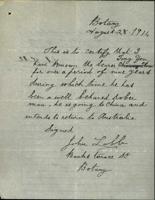 Botany
August 28 1914
This is to certify that I
Tong Yow
have known the bearer
for over a period of nine years
during which time he has
been a well behaved sober
man, he is going to China and
intends to return to Australia.
Signed
John
St
Botany